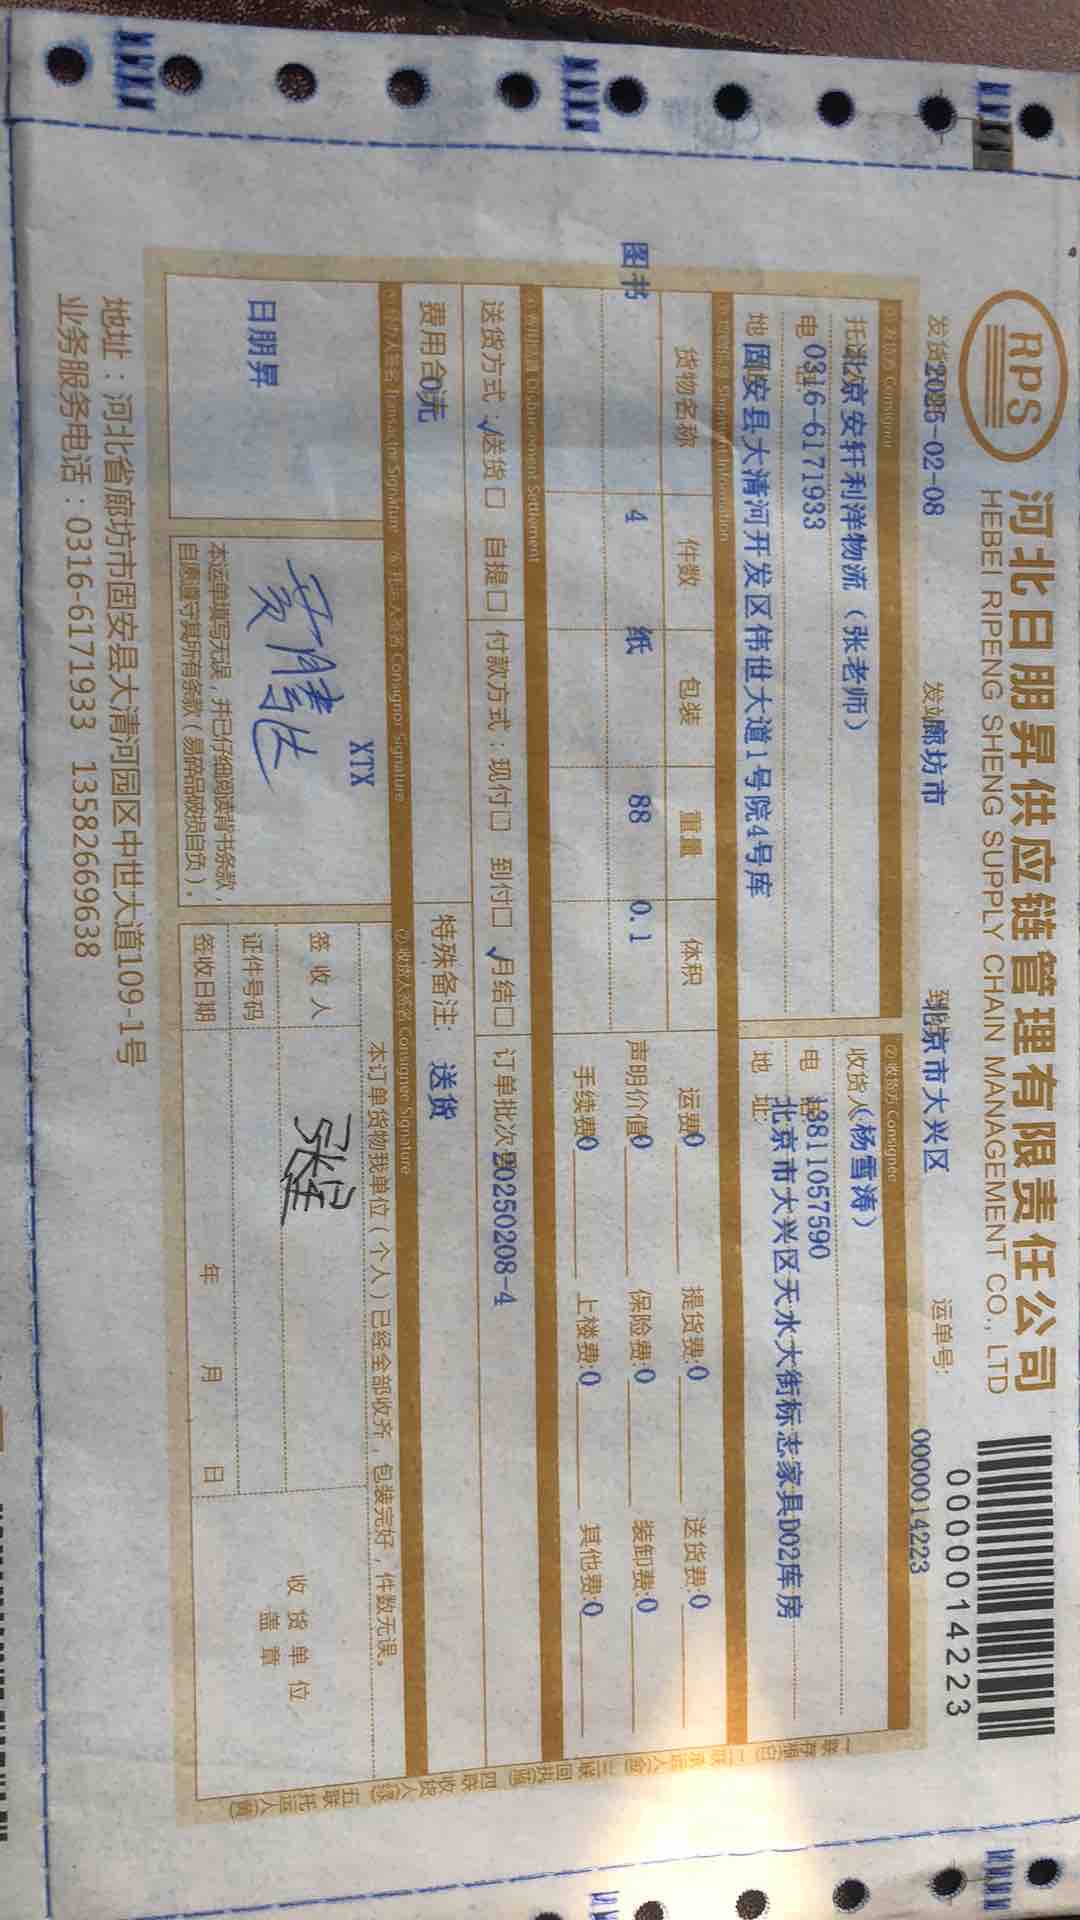 RPS
河北日朋昇供应链管理有限责任公司
HEBEI RIPENG SHENG SUPPLY CHAIN MANAGEMENT CO., LTD
0000014223
发货2025-02-08 发站廊坊市 到北京市大兴区 运单号: 0000014223
Consignor
②收货方 Consignee
托北京安轩利洋物流（张老师）
收货人（杨雪涛）
电0316-6171933
电 13811057590
地 固安县大清河开发区伟世大道1号院4号库
地址: 北京市大兴区天水大街标志家具D02库房
Shipment Information
货物名称 件数 包装 重量 体积
图书 4 纸 88 0.1
运费0 提货费:0 送货费:0
声明价值0 保险费:0 装卸费:0
手续费0 上楼费:0 其他费:0
Disbursement Settlement
送货方式:✓送货□ 自提□ 付款方式:现付□ 到付□ ✓月结□ 订单批次20250208-4
费用合0元
特殊备注: 送货
Transactor Signature
Consignor Signature
⑦收货人签名 Consignee Signature
日朋昇
XTX
本运单填写无误,并已仔细阅读背书条款,
自愿遵守其所有条款(易碎品破损自负)。
本订单货物我单位(个人)已经全部收齐,包装完好,件数无误。
签收人
证件号码
签收日期 年 月 日
收货单位
盖章
地址：河北省廊坊市固安县大清河园区中世大道109-1号
业务服务电话：0316-6171933 13582669638